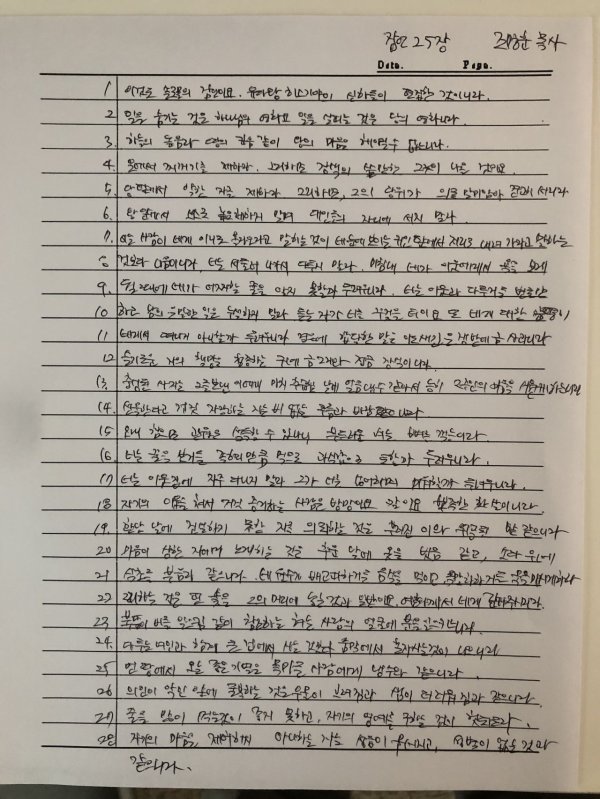 잠언 25장 목사
Date. Page.
1 이것도 솔로몬의 잠언이요 유다왕 히스기야의 신하들이 편집한 것이니라.
2 일을 숨기는 것은 하나님의 영화요 일을 살피는 것은 왕의 영화니라.
3. 하늘의 높음과 땅의 깊음 같이 왕의 마음은 헤아릴수 없느니라.
4. 은에서 찌꺼기를 제하라. 그리하면 장색의 쓸만한 그릇이 나올 것이요
5. 왕 앞에서 악한 자를 제하라 그리하면, 그의 왕위가 의로 말미암아 견고히 서리라
6. 왕 앞에서 스스로 높은체하지 말며 대인들의 자리에 서지 말라.
7. 이는 사람이 네게 이리로 올라오라고 말하는 것이 네 눈에 보이는 귀인 앞에서 저리로 내려 가라고 말하는
8 것보다 나음이니라, 너는 서둘러 나가서 다투지 말라. 마침내 네가 이웃에게서 욕을 보게
9. 될 때에 네가 어찌할 줄을 알지 못할까 두려우니라. 너는 이웃과 다투거든 변론만
10 하고 남의 은밀한 일은 누설하지 말라 듣는 자가 너를 꾸짖을 터이요 또 네게 대한 악평이
11 네게서 떠나지 아니할까 두려우니라 경우에 합당한 말은 아로새긴 은 쟁반에 금 사과니라
12 슬기로운 자의 책망은 청종하는 귀에 금 고리와 정금 장식이니라.
13. 충성된 사자는 그를 보낸 이에게 마치 추수하는 날에 얼음냉수 같아서 능히 그 주인의 마음을 시원케 하느니라
14. 선물한다고 거짓 자랑하는 자는 비 없는 구름과 바람 같으니라
15 오래 참으면 관원도 설득할 수 있나니 부드러운 혀는 뼈를 꺾느니라.
16. 너는 꿀을 보거든 족하리만큼 먹으라 과식함으로 토할까 두려우니라.
17. 너는 이웃집에 자주 다니지 말라 그가 너를 싫어하며 미워할까 두려우니라.
18 자기의 이웃을 쳐서 거짓 증거하는 사람은 방망이요 칼이요 뾰족한 화살이니라.
19. 환난 날에 진실하지 못한 자를 의뢰하는 것은 부러진 이와 위골된 발 같으니라
20 마음이 상한 자에게 노래하는 것은 추운 날에 옷을 벗음 같고, 소다 위에
21 식초를 부음과 같으니라. 네 원수가 배고파하거든 음식을 먹이고 목말라하거든 물을 마시게하라
22 그리하는 것은 핀 숯을 그의 머리에 놓는 것과 일반이요. 여호와께서 네게 갚아주시리라.
23. 북풍이 비를 일으킴 같이 참소하는 혀는 사람의 얼굴에 분을 일으키느니라.
24. 다투는 여인과 함께 큰 집에서 사는 것보다 움막에서 혼자 사는 것이 나으니라
25 먼 땅에서 오는 좋은 기별은 목마른 사람에게 냉수와 같으니라.
26 의인이 악인 앞에 굴복하는 것은 우물이 흐려짐과 샘이 더러워짐과 같으니라.
27 꿀을 많이 먹는것이 좋지 못하고, 자기의 영예를 구하는 것이 헛되니라.
28 자기의 마음을 제어하지 아니하는 자는 성읍이 무너지고, 성벽이 없는 것과
같으니라.